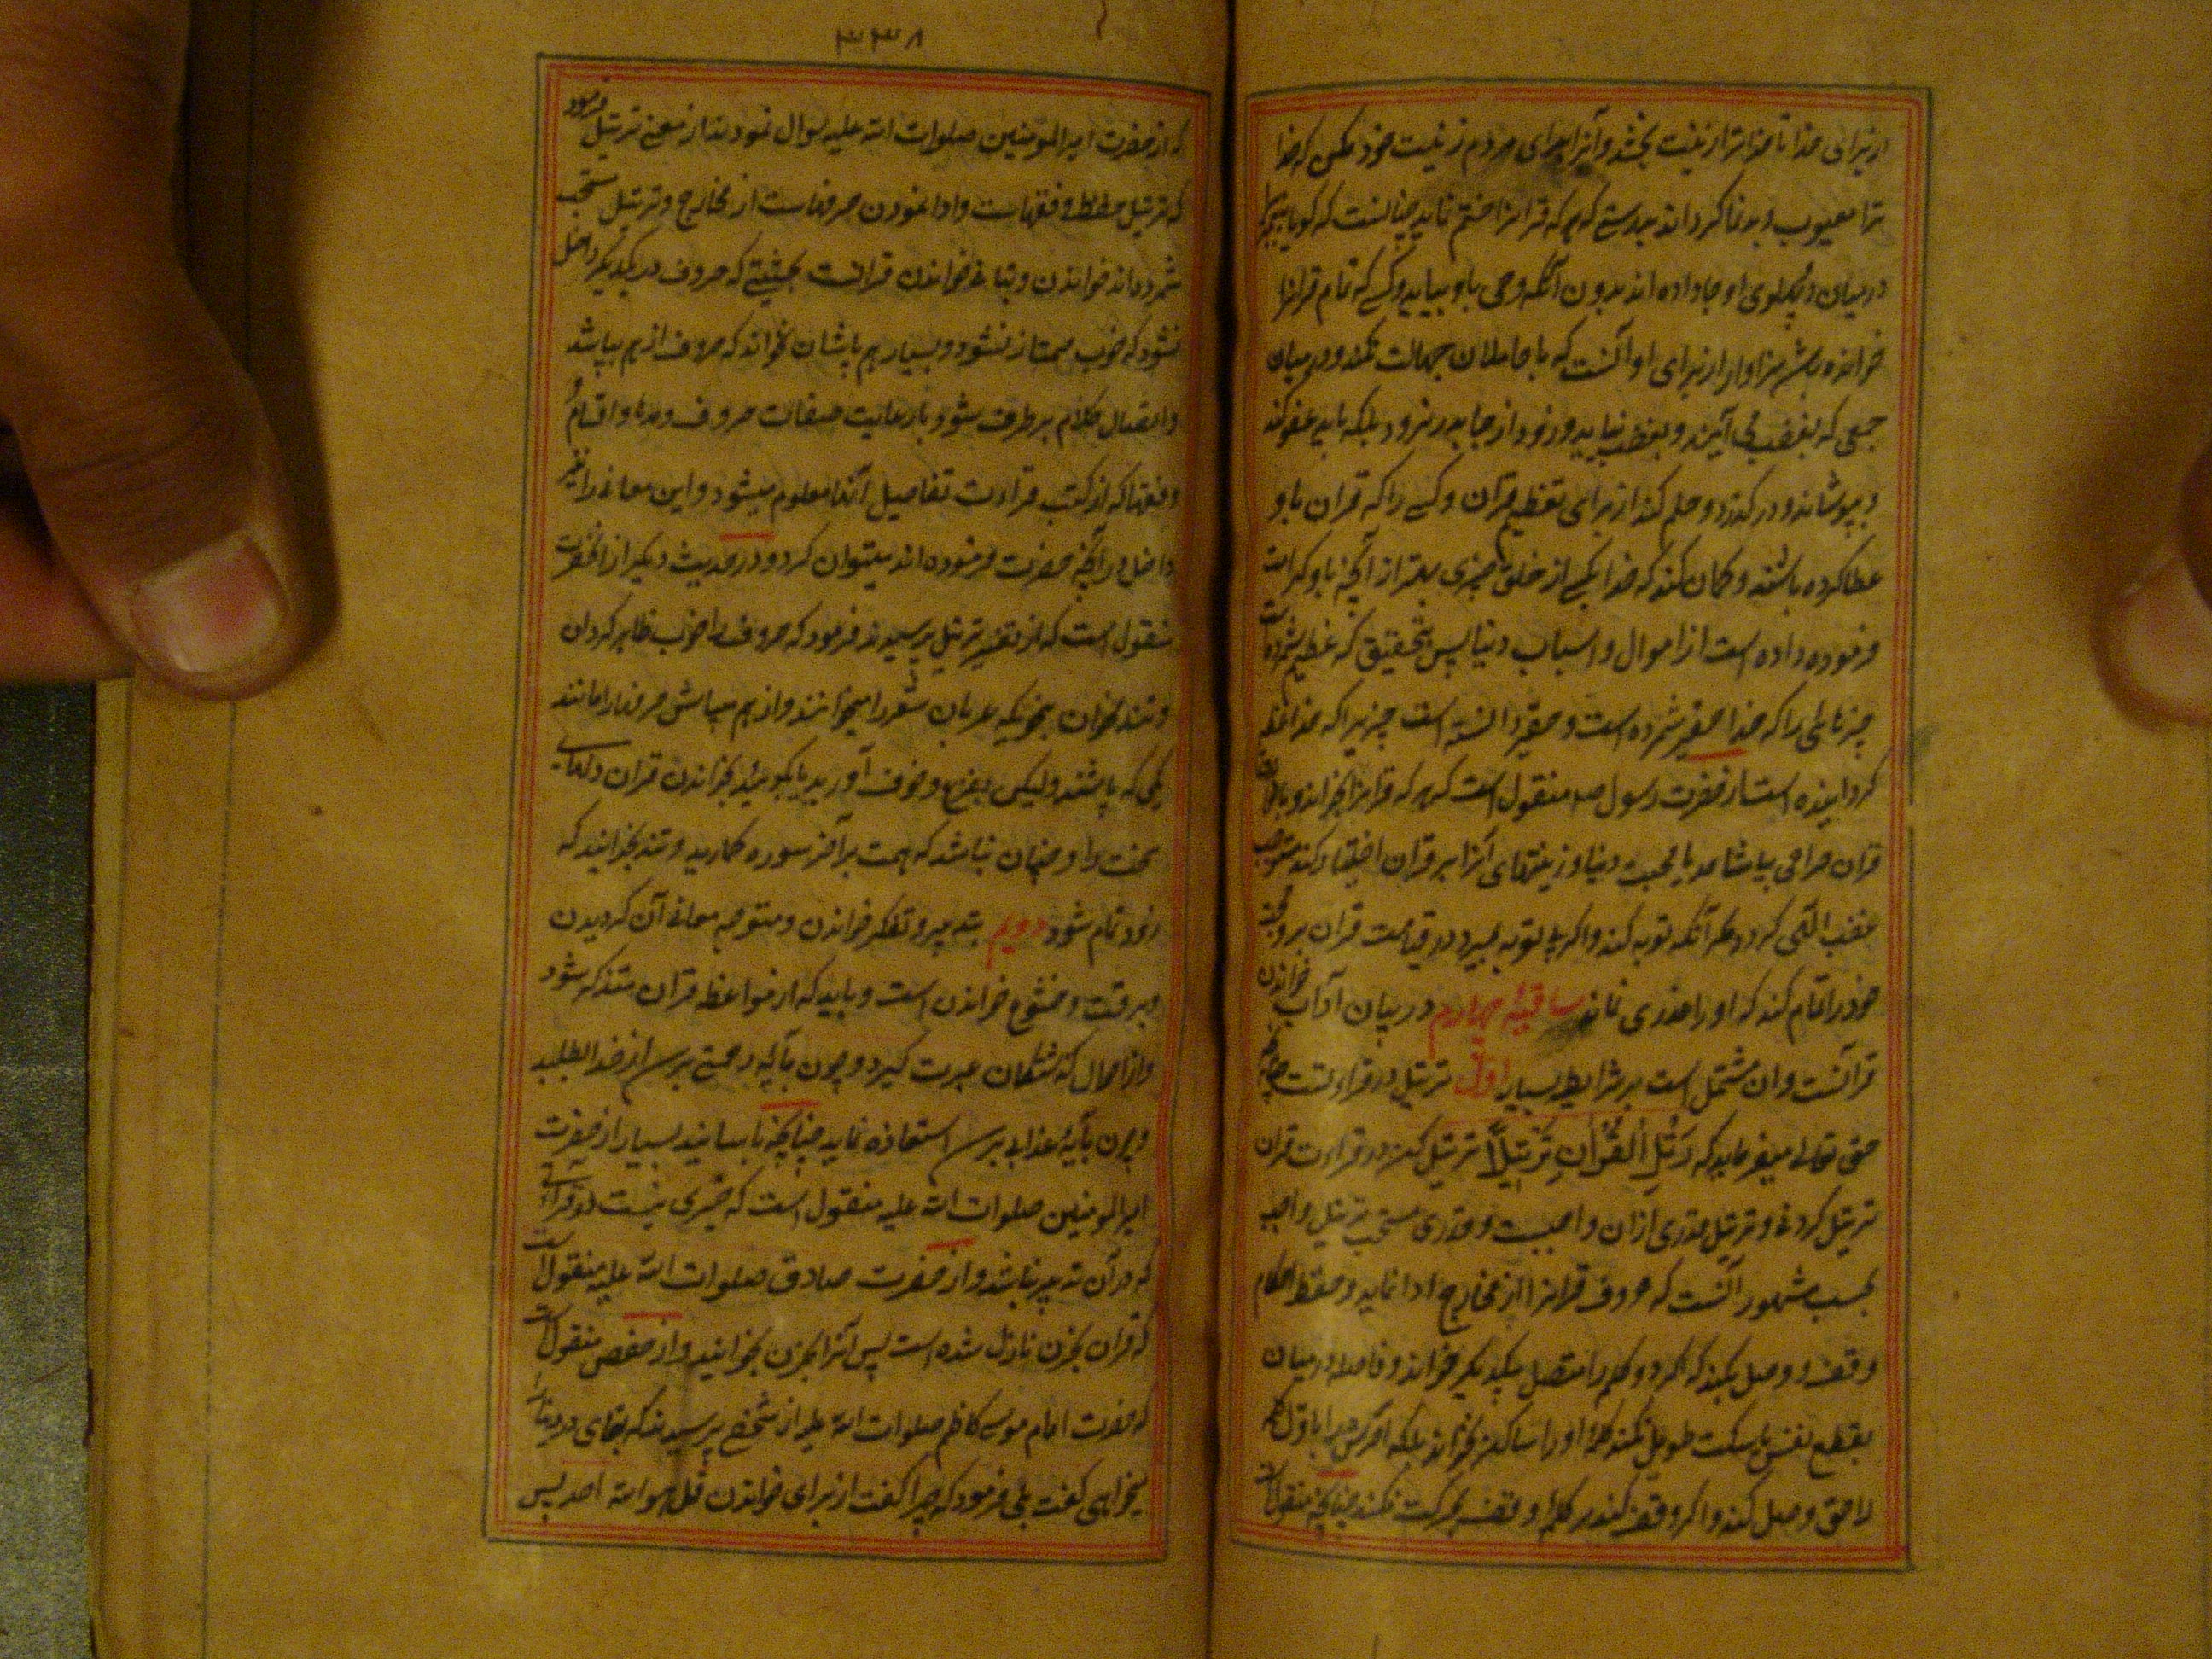 از برای خدا تا خدا ترا زینت بخشد و آنرا برای مردم زینت خود مکن که خدا
ترا معیوب و بدنما کرداند بدرستی که هر که قرانرا ختم نماید چنانست که کویا پیغمبری
در میان دو پهلوی او جا داده اند بدون آنکه وحی باو بیاید و کسی که تمام قرانرا
خوانده باشد سزاوار از برای او آنست که با جاهلان جهالت نکند و در میان
جمعی که بغضب می آیند و بغضب نیاید و زود از جا بدر نرود بلکه باید عفو کند
و بپوشاند و درکذرد و حلم کند از برای تعظیم قرآن و کسی را که قران باو
عطا کرده باشند و کمان کند که خدا بکسی از خلق چیزی بهتر از آنچه باو کرامت
فرموده داده است از اموال و اسباب دنیا پس بتحقیق که عظیم شمرده است
چیزهائی را که خدا حقیر شمرده است و حقیر دانسته است چیزیرا که خدا عظیم
کردانیده است از حضرت رسول ص منقول است که هر که قرانرا بخواند و بالای
قران حرامی بیاشامد یا محبت دنیا و زینتهای آنرا بر قران اختیار کند مستوجب
غضب الهی کردد مکر آنکه توبه کند و اکر بی توبه بمیرد در قیامت قران برو حجت
خود را تمام کند که او را عذری نماند ساقیه چهارم در بیان آداب خواندن
قرآنست و ان مشتمل است بر شرایط بسیار اول ترتیل در قراءتست چنانچه
حق تعالی میفرماید که رَتِّلِ القُرْآنَ تَرْتِیلاً ترتیل کن در قراءت قران
ترتیل کردنی و ترتیل قدری ازان واجبست و قدری مستحب ترتیل واجب
بحسب مشهور آنست که حروف قرانرا از مخارج ادا نماید و حفظ احکام
وقف و وصل بکند که اکر دو کلمه را متصل بیکدیکر خواند و فاصله در میان
بقطع نفس یا سکت طویل نکند کلمهٔ او را ساکن نخواند بلکه آخرش را باول کلمه
لاحق وصل کند و اکر وقف کند بر کلمه وقف بحرکت نکند چنانچه منقولست
۳۳۸
که از حضرت امیرالمؤمنین صلوات الله علیه سؤال نمودند از معنی ترتیل فرمود
که ترتیل حفظ وقفهاست و ادا نمودن حرفهاست از مخارج و ترتیل مستحب
شمرده اند خواندن و بتانی خواندن قرانست بحیثیتی که حروف در یکدیکر داخل
نشود که خوب ممتاز نشود و بسیار هم پاشان نخواند که حروف از هم بپاشد
و اتصال کلام برطرف شود با رعایت صفات حروف و مدها و اقسام
وقفها که از کتب قراءت تفاصیل آنها معلوم میشود و این معانی را نیز
داخل در آنچه حضرت فرموده اند میتوان کرد و در حدیث دیکر از آنحضرت
منقول است که از تفسیر ترتیل پرسیدند فرمود که حروف را خوب ظاهر کردان
و تند مخوان بنحویکه عربان شعر را میخوانند و از هم مپاش حرفها را مانند
ریکی که پاشند ولیکن بفزع و خوف آورید بخواندن قران دلهای
سخت را و چنان نباشد که همت بر آخر سوره کمارید و تند بخوانید که
زود تمام شود دویم بتدبر و تفکر خواندن و متوجه معانی آن کردیدن
و برقت و خشوع خواندن است و باید که از مواعظ قران متذکر شود
و از احوال کذشتکان عبرت کیرد و چون بآیه رحمتی برسد از خدا بطلبد
و چون بآیهٔ عذاب برسد استعاذه نماید چنانچه باسانید بسیار از حضرت
امیرالمؤمنین صلوات الله علیه منقول است که خیری نیست در قرائتی
که در آن تدبر نباشد و از حضرت صادق صلوات الله علیه منقول است
که قران بحزن نازل شده است پس آنرا بحزن بخوانید و از حفص منقول است
که حضرت امام موسی کاظم صلوات الله علیه از شخصی پرسیدند که بقای در دنیا را
میخواهی کفت بلی فرمود که چرا کفت از برای خواندن قل هو الله احد پس